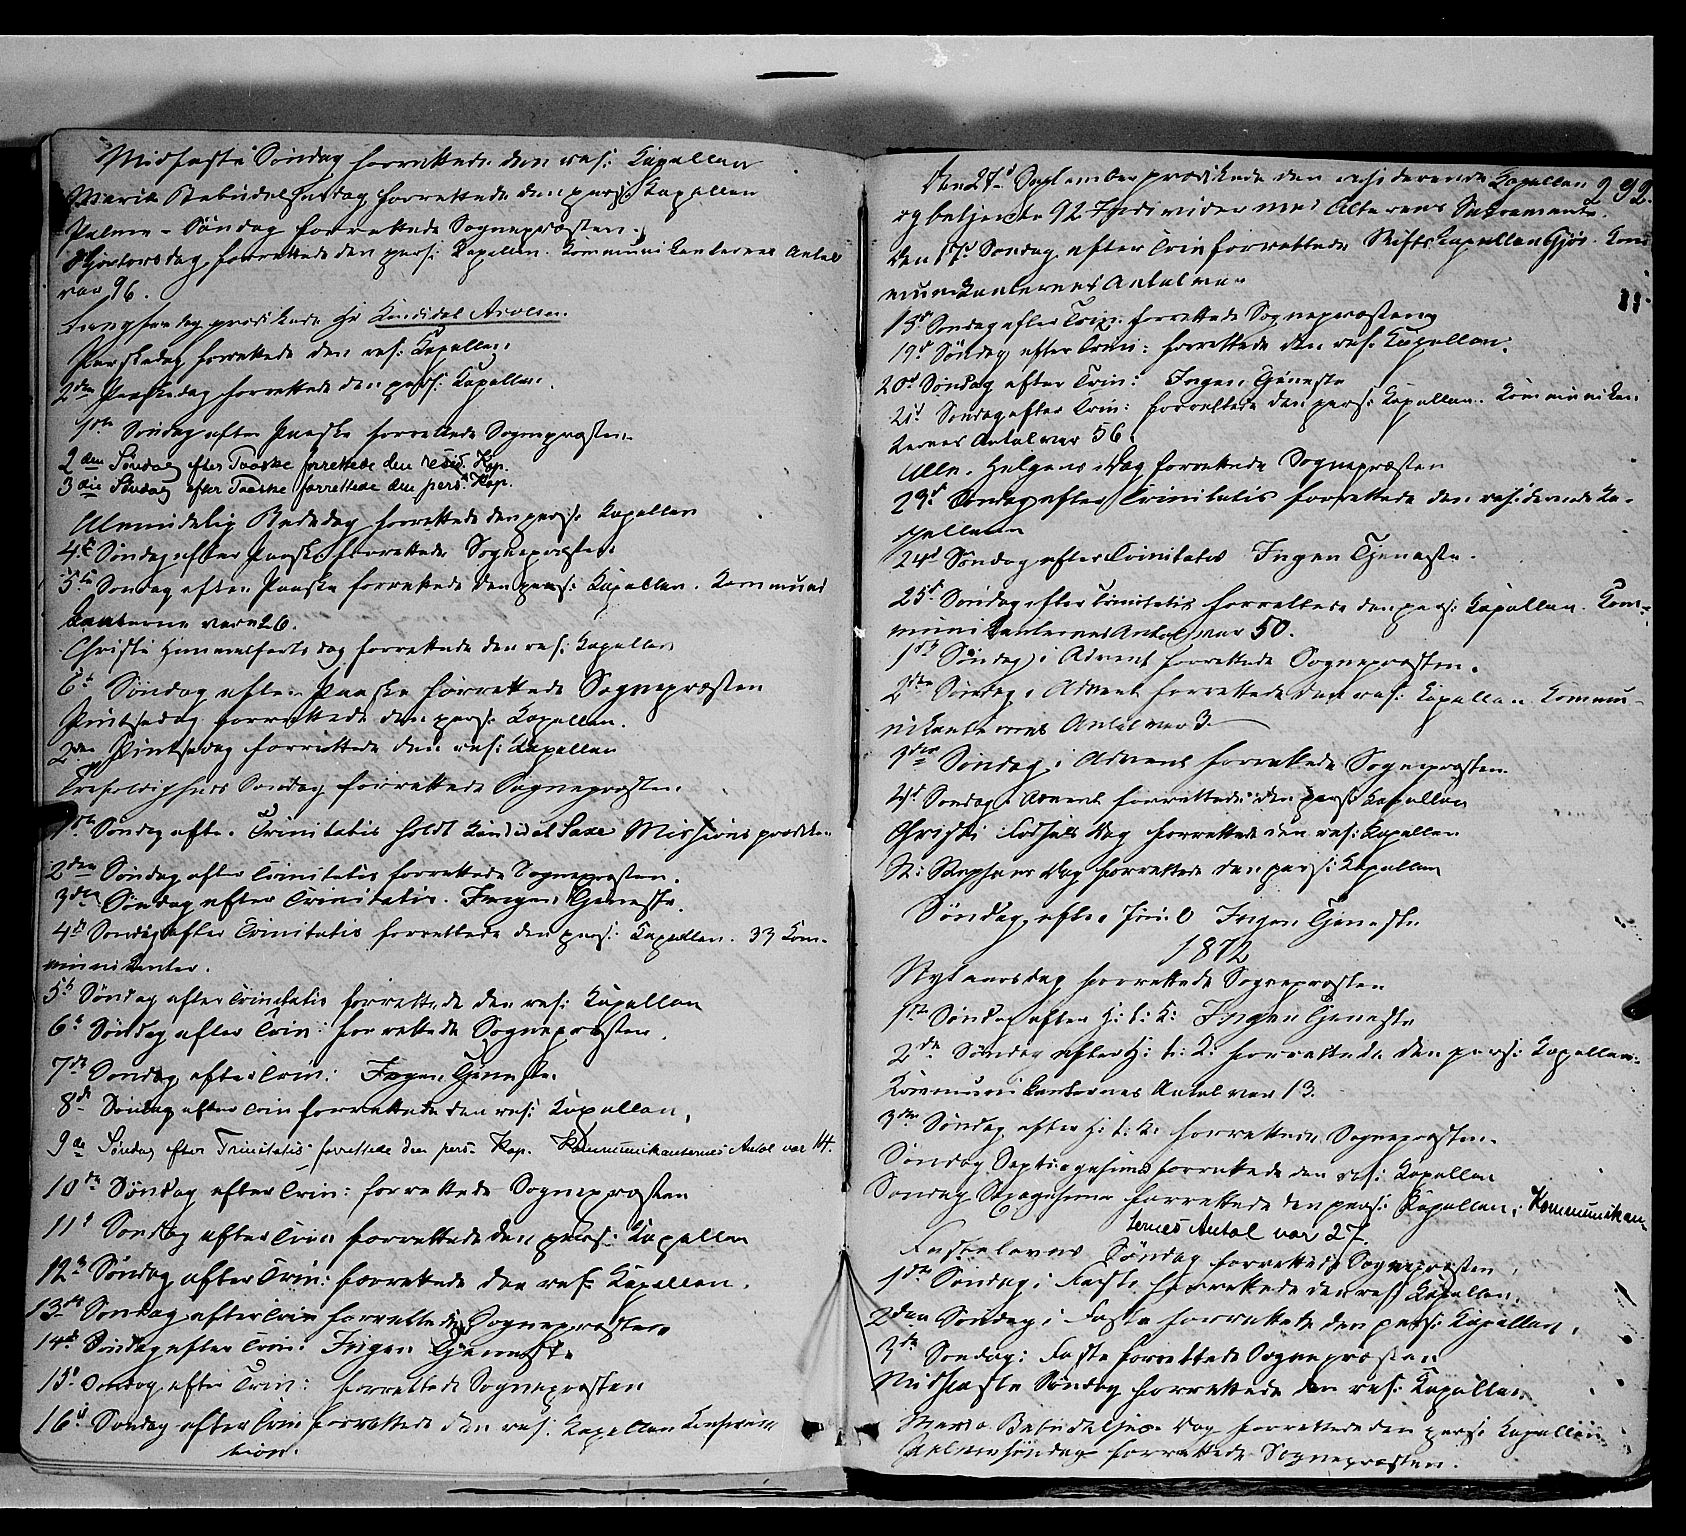 Midfaste Søndag forrettede den res: Kapellan
Mariæ Bebudelsesdag forrettede den pers: Kapellan
Palme-Søndag forrettede Sognepræsten.
Skjertorsdag forrettede den pers: Kapellan. Kommunikanternes Antal
var 96.
Langfredag prædikede Hr Kandidat
Paaskedag forrettede den res: Kapellan.
2den Paaskedag forrettede den pers: Kapellan.
1ste Søndag efter Paaske forrettede Sognepræsten.
2den Søndag efter Paaske forrettede den resid. Kap.
3die Søndag efter Paaske forrettede den pers. Kap.
Almindelig Bededag forrettede den pers: Kapellan
4de Søndag efter Paaske forrettede Sognepræsten
5te Søndag efter Paaske forrettede den pers: Kapellan. Kommuni
kanterne vare 26.
Christi Himmelfarts dag forrettede den res: Kapellan
6te Søndag efter Paaske forrettede Sognepræsten
Pintsedag forrettede den pers: Kapellan.
2den Pintsedag forrettede den res: Kapellan
Trefoldigheds Søndag forrettede Sognepræsten.
1ste Søndag efter Trinitatis holdt Kandidat Saxe Missionsprædiken
2den Søndag efter Trinitatis forrettede Sognepræsten.
3die Søndag efter Trinitatis. Ingen Tjeneste.
4de Søndag efter Trinitatis forrettede den pers: Kapellan. 33 Kom-
munikanter.
5te Søndag efter Trinitatis forrettede den res: Kapellan
6te Søndag efter Trin: forrettede Sognepræsten.
7de Søndag efter Trin: Ingen Tjeneste.
8de Søndag efter Trin forrettede den res: Kapellan.
9de Søndag efter Trinitatis forrettede den pers. Kap. Kommunikanternes Antal var 14.
10de Søndag efter Trin: forrettede Sognepræsten
11te Søndag efter Trin forrettede den pers: Kapellan
12te Søndag efter Trin: forrettede den res: Kapellan.
13de Søndag efter Trin forrettede Sognepræsten
14de Søndag efter Trin: Ingen Tjeneste
15de Søndag efter Trin: forrettede Sognepræsten
16de Søndag efter Trin forrettede den res: Kapellan Konfirma
tion.
Den 27de September prædikede den residerende Kapellan 292.
og betjente 92 Individer med Alterens Sacramente.
Den 17de Søndag efter Trin forrettede Stiftskapellan Gjør. Kom
munikanternes Antal var 11
18de Søndag efter Trin. forrettede Sognepræsten
19de Søndag efter Trin: forrettede den res: Kapellan.
20de Søndag efter Trin: Ingen Tjeneste
21de Søndag efter Trin: forrettede den pers: Kapellan. Kommunikan
ternes Antal var 56.
Alle Helgens Dag forrettede Sognepræsten
23de Søndag efter Trinitatis forrettede den residerende Ka-
pellan
24de Søndag efter Trinitatis Ingen Tjeneste.
25de Søndag efter Trinitatis forrettede den pers: Kapellan. Kom-
munikanternes Antal var 50.
1ste Søndag i Advent forrettede Sognepræsten.
2den Søndag i Advent forrettede den res: Kapellan Kommu-
nikanternes Antal var 3
3die Søndag i Advent forrettede Sognepræsten
4de Søndag i Advent forrettede den pers: Kapellan
Christi Fødsels Dag forrettede den res: Kapellan
St: Stephans Dag forrettede den pers: Kapellan
Søndag efter Juul Ingen Tjeneste
1872
Nytaarsdag forrettede Sognepræsten
1ste Søndag efter H: t: K: Ingen Tjeneste
2den Søndag efter H: t: K: forrettede den pers: Kapellan.
Kommunikanternes Antal var 13.
3die Søndag efter H: t: K: forrettede Sognepræsten.
Søndag Septuagesima forrettede den res: Kapellan
Søndag Sexagesima forrettede den pers: Kapellan. Kommunikan
ternes Antal var 27.
Fastelavns Søndag forrettede Sognepræsten.
1ste Søndag i Faste forrettede den res: Kapellan.
2den Søndag i Faste forrettede den pers: Kapellan.
3die Søndag i Faste forrettede Sognepræsten
Midfaste Søndag forrettede den res: Kapellan
Mariæ Bebudelses Dag forrettede den pers: Kapellan
Palmesøndag forrettede Sognepræsten.